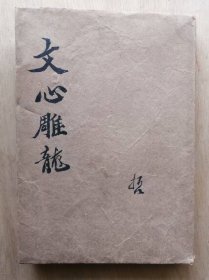 文心雕龍
哲